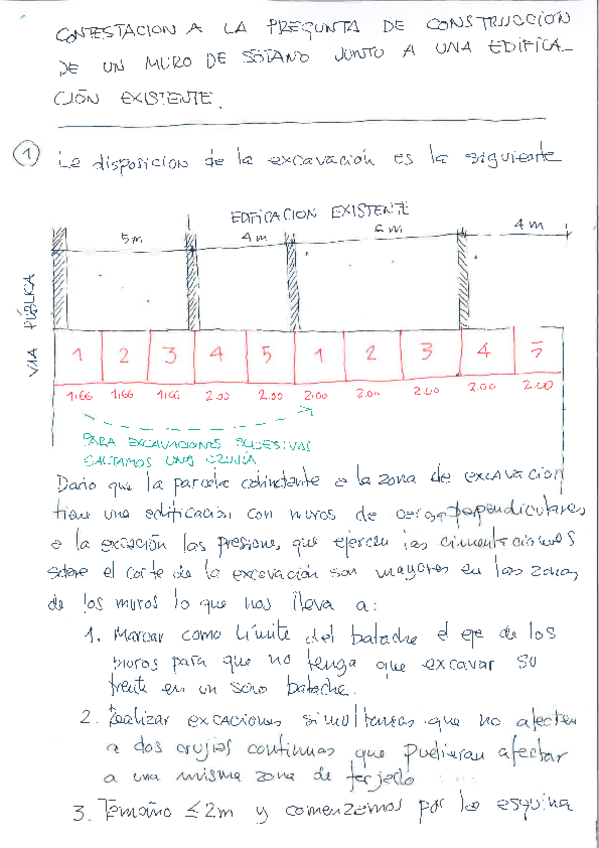 CONTESTACION A LA PREGUNTA DE CONSTRUCCION
DE UN MURO DE SÓTANO JUNTO A UNA EDIFICA-
CIÓN EXISTENTE.
1 La disposicion de la excavación es la siguiente
EDIFICACION EXISTENTE
5m 4m 6m 4m
VIA PÚBLICA
1 2 3 4 5 1 2 3 4 5
1,66 1,66 1,66 2.00 2.00 2.00 2.00 2.00 2.00 2.00
PARA EXCAVACIONES SUCESIVAS
SALTAMOS UNA CRUJIA
Dado que la parcela colindante a la zona de excavacion
tiene una edificación con muros de carga perpendiculares
a la excación las presiones que ejercen las cimentaciones
sobre el corte de la excavación son mayores en las zonas
de los muros lo que nos lleva a:
1. Marcar como límite del batache el eje de los
muros para que no tenga que excavar su
frente en un solo batache.
2. Realizar excaciones simultaneas que no afecten
a dos crujias continuas que pudieran afectar
a una misma zona de forjado
3. Tamaño ≤ 2m y comenzamos por la esquina